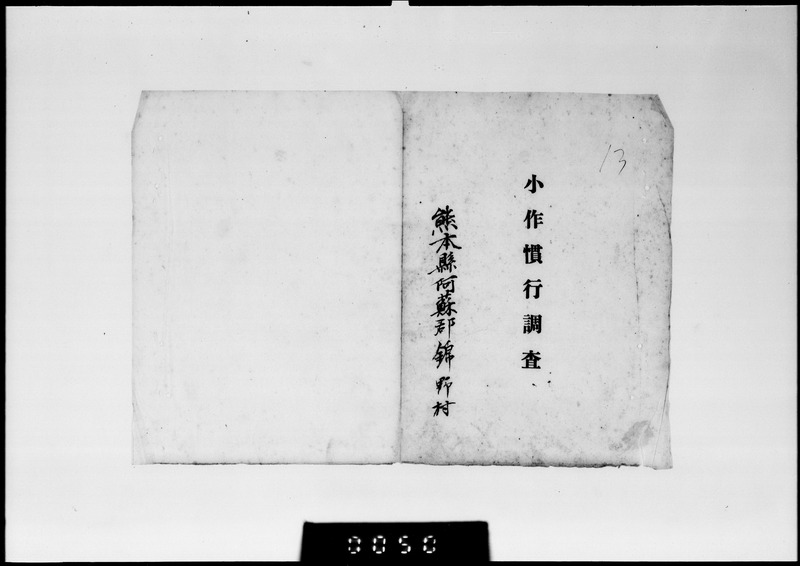 13
小作慣行調査
熊本縣阿蘇郡錦野村
0050